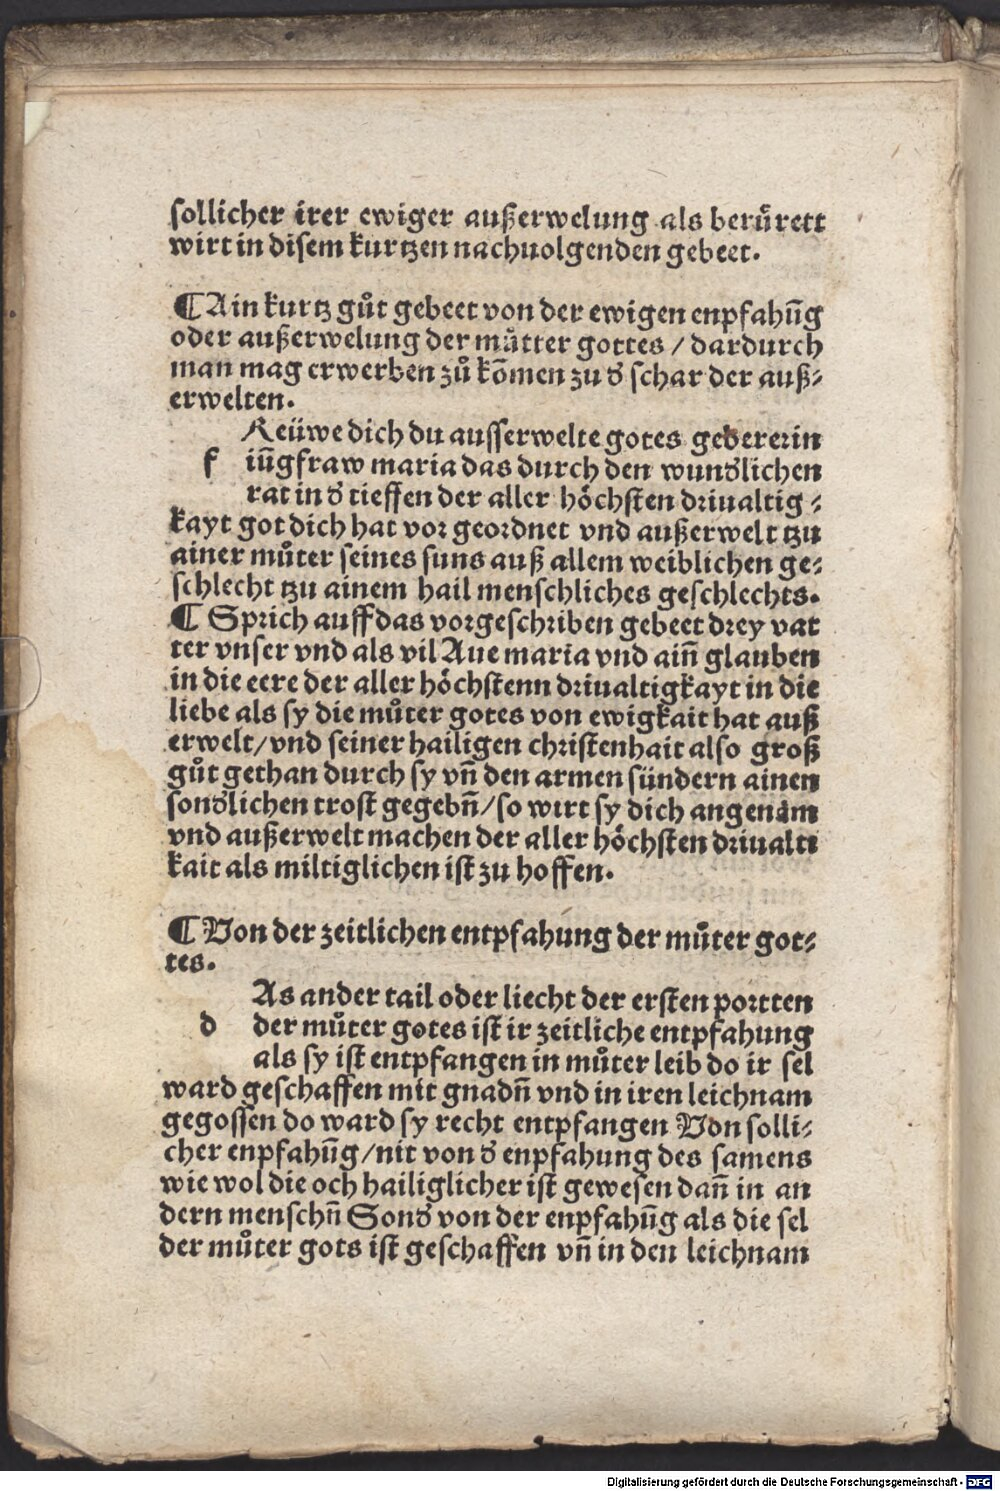 sollicher irer ewiger außerwelung als berürett
wirt in disem kurtzen nachuolgenden gebeet.
¶ Ain kurtz gůt gebeet von der ewigen enpfahūg
oder außerwelung der můtter gottes / dardurch
man mag erwerben zů kōmen zu ď schar der auß⸗
erwelten.
Reüwe dich du ausserwelte gotes gebererin
f iūgfraw maria das durch den wunďlichen
rat in ď tieffen der aller höchsten driualtig⸗
kayt got dich hat vor geordnet vnd außerwelt tzu
ainer můter seines suns auß allem weiblichen ge⸗
schlecht tzu ainem hail menschliches geschlechts.
¶ Sprich auff das vorgeschriben gebeet drey vat
ter vnser vnd als vil Aue maria vnd ain̄ glauben
in die eere der aller höchstenn driualtigkayt in die
liebe als sy die můter gotes von ewigkait hat auß
erwelt/vnd seiner hailigen christenhait also groß
gůt gethan durch sy vn̄ den armen sündern ainen
sonďlichen trost gegebn̄/so wirt sy dich angenām
vnd außerwelt machen der aller höchsten driualti
kait als miltiglichen ist zu hoffen.
¶ Von der zeitlichen entpfahung der můter got⸗
tes.
As ander tail oder liecht der ersten portten
d der můter gotes ist ir zeitliche entpfahung
als sy ist entpfangen in můter leib do ir sel
ward geschaffen mit gnadn̄ vnd in iren leichnam
gegossen do ward sy recht entpfangen Von solli⸗
cher enpfahūg/nit von ď enpfahung des samens
wie wol die och hailiglicher ist gewesen dan̄ in an
dern menschn̄ Sonď von der enpfahūg als die sel
der můter gots ist geschaffen vn̄ in den leichnam
Digitalisierung gefördert durch die Deutsche Forschungsgemeinschaft - DFG